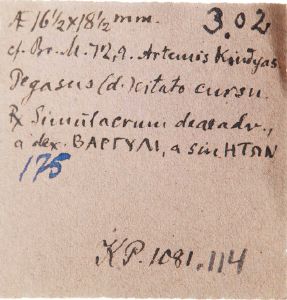 Æ 16½ x 18½ mm. 3.02
cf. Br. M. 72,9. Artemis Kindyas
Pegasus (d.) citato cursu
℞ Simulacrum deae adv.,
a dex. ΒΑΡΓΥΛΙ, a sin ΗΤΩΝ
175
KP. 1081. 114